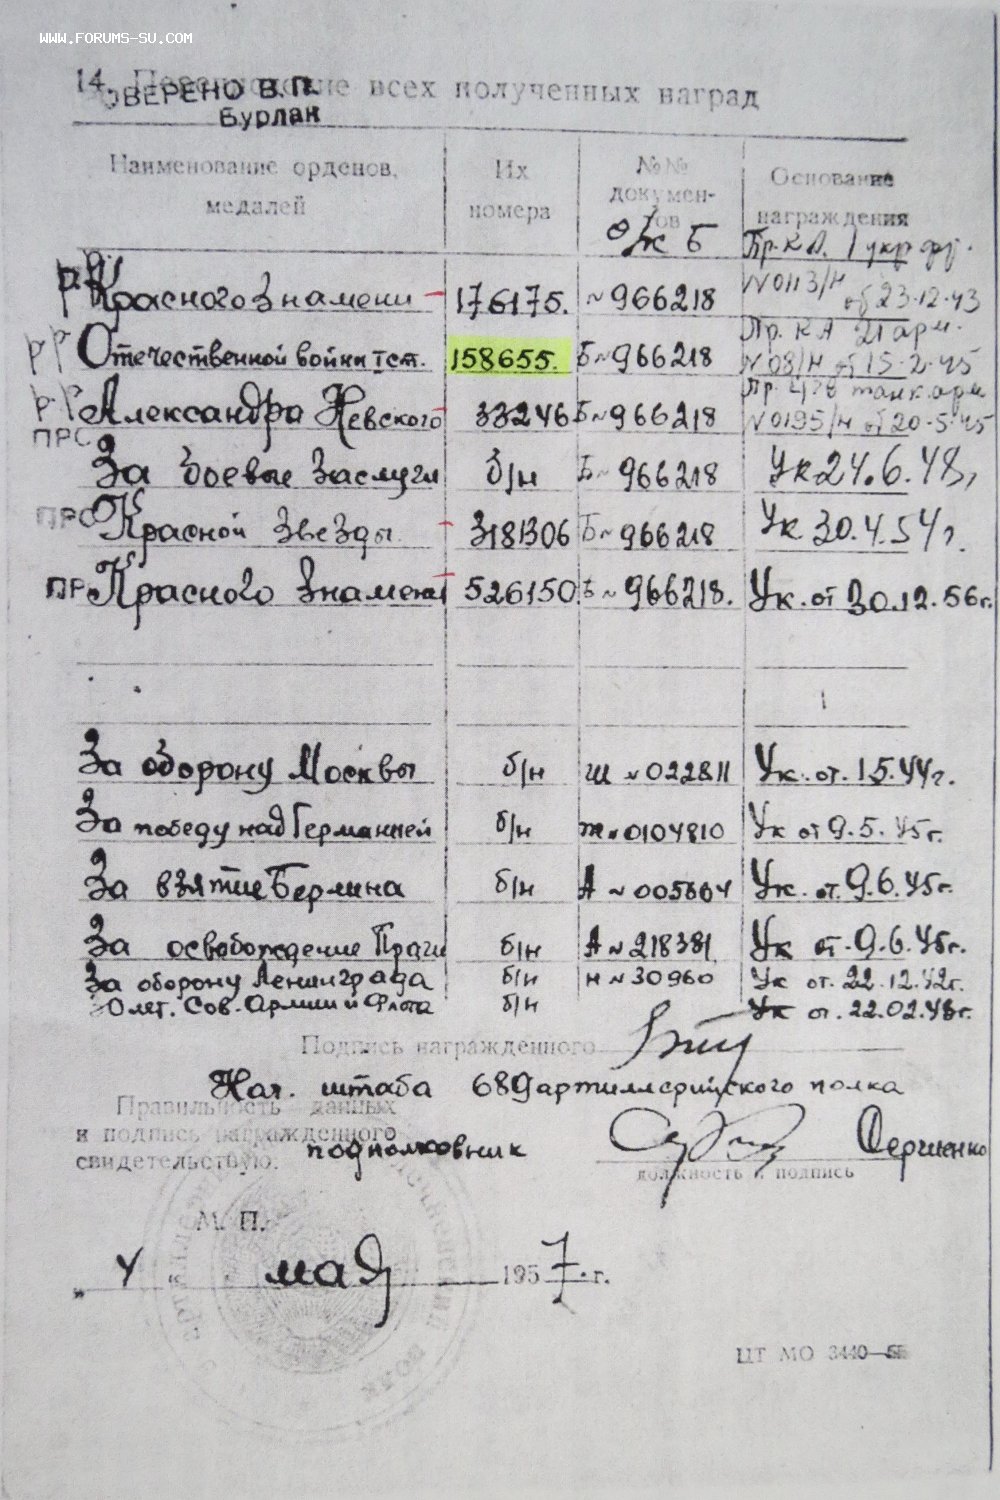 WWW.FORUMS-SU.COM
14. всех полученных наград
ОВЕРЕНО В.П.
Бурлак
Наименование орденов, медалей Их номера №№ документов Основание награждения
о/к Б Пр. К А. 1 укр. фр.
Красного Знамени 176175. №966218 N0113/н от 23.12.43
Отечественной войны I ст. 158655. Б №966218 Пр. К А 21 арм. N08/н от 15.2.45
Александра Невского 33246 Б №966218 Пр. 4 гв танк. арм N0195/н от 20.5.45
ПРС
За боевые заслуги б/н Б №966218 Ук 24.6.48г
ПРС Красной Звезды 3181306 Б №966218 Ук 30.4.54г.
ПР Красного Знамени 526150. Б №966218. Ук. от 30.12.56г.
За оборону Москвы б/н Ш №022811 Ук. от. 1.5.44г.
За победу над Германией б/н №0104810 Ук от 9.5.45г.
За взятие Берлина б/н А №005664 Ук. от. 9.6.45г.
За освобождение Праги б/н А №218381 Ук от. 9.6.45г.
За оборону Ленинграда б/н Н №30960 Ук от. 22.12.42г.
30 лет. Сов. Армии и Флота б/н Ук от. 22.02.48г.
Подпись награжденного
Нач. штаба 689 артиллерийского полка
Правильность данных
и подпись награжденного
свидетельствую: подполковник Сергиенко
должность и подпись
М. П.
„ 4 “ мая 1957.г.
ЦТ МО 3440—55